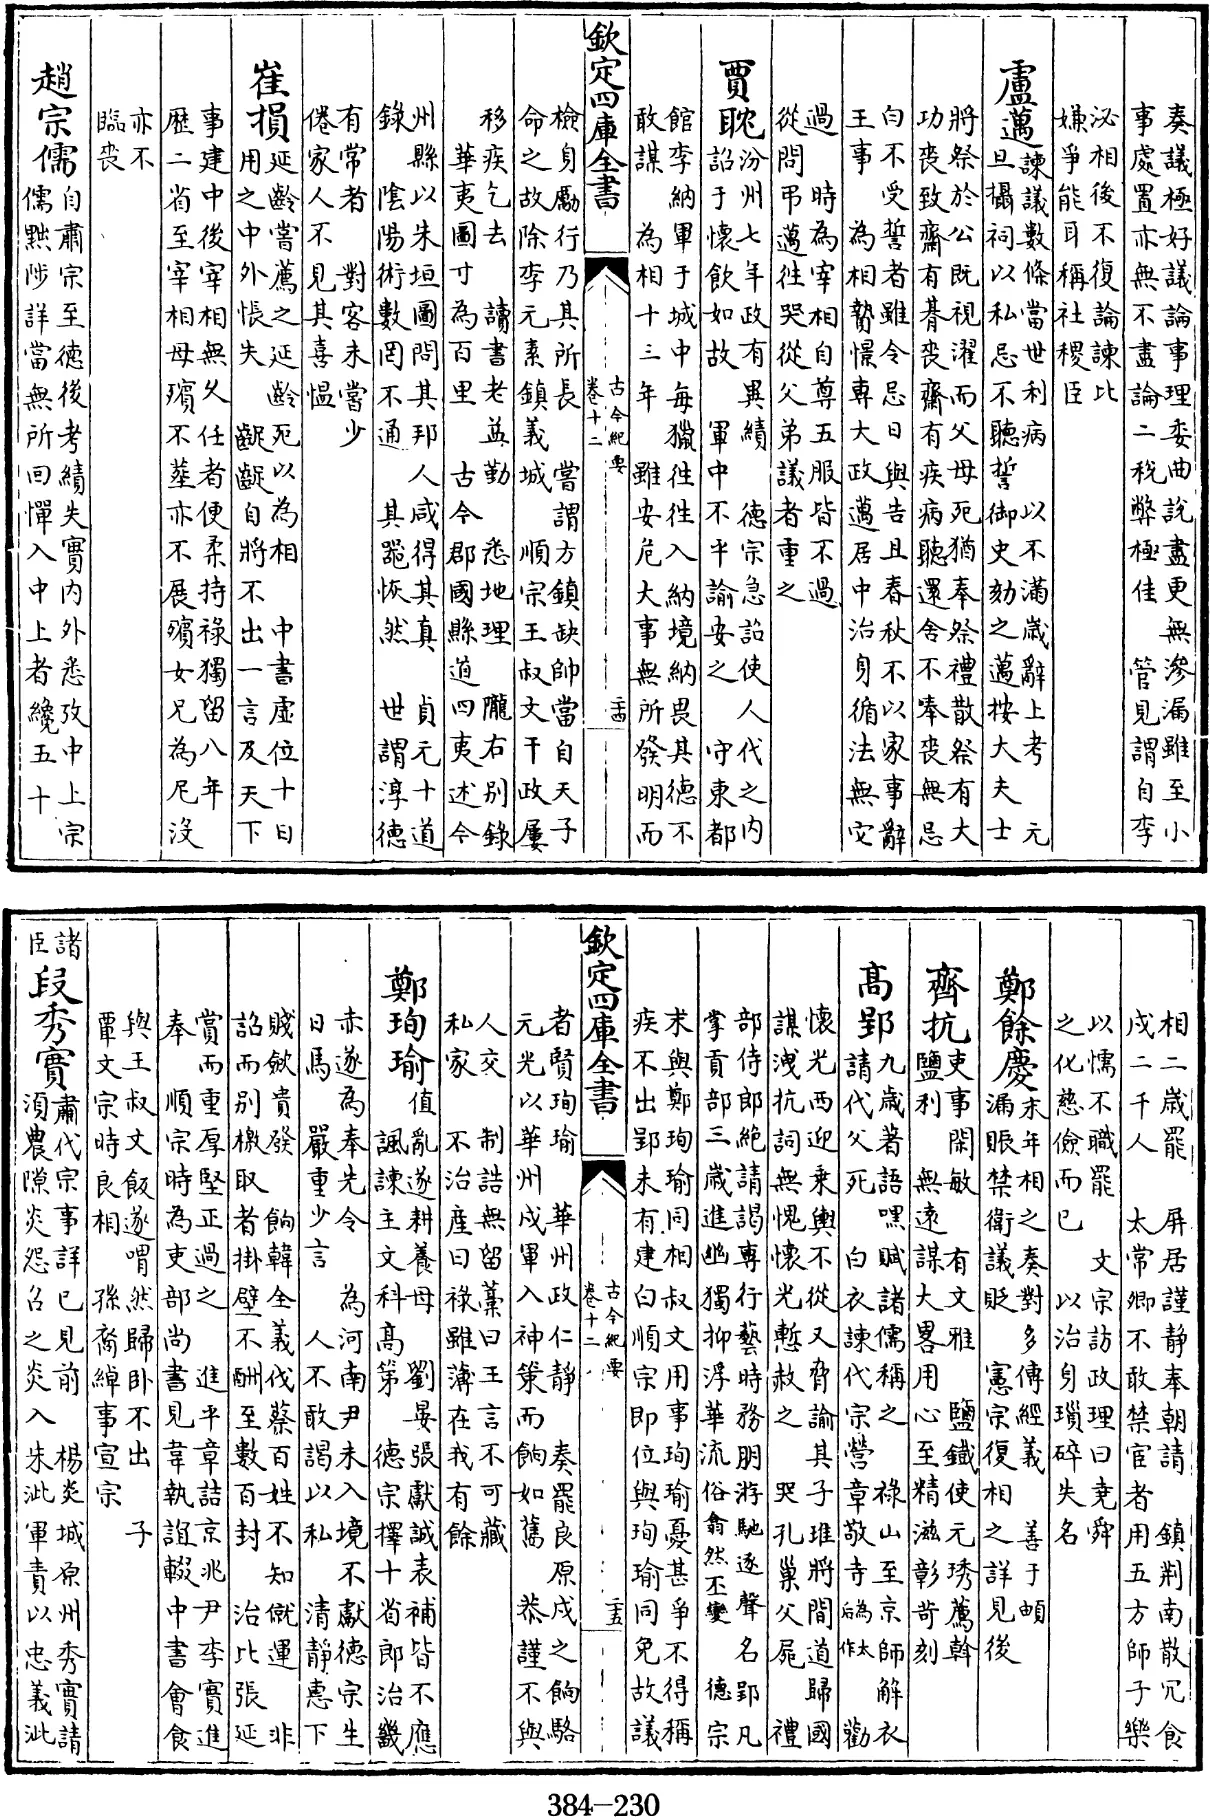 奏議極好議論事理委曲說盡更無滲漏雖至小
事處置亦無不盡論二稅弊極佳　管見謂自李
泌相後不復論諫比
嫌爭能耳稱社稷臣
盧邁諫議數條當世利病　以不滿歲辭上考　元
旦攝祠以私忌不聽誓御史劾之邁按大夫士
將祭於公既視濯而父母死猶奉祭禮散祭有大
功喪致齋有朞喪齋有疾病聽還舍不奉喪無忌
白不受誓者雖令忌日與告且春秋不以家事辭
王事　為相贄憬專大政邁居中治身循法無它
過　時為宰相自尊五服皆不過
從問弔邁往哭從父弟議者重之
賈耽汾州七年政有異績　德宗急詔使人代之內
詔于懷飲如故　軍中不平諭安之　守東都
館李納軍于城中每獵往往入納境納畏其德不
敢謀　為相十三年　雖安危大事無所發明而
欽定四庫全書
古今紀要
卷十二
二十四
檢身勵行乃其所長　嘗謂方鎮缺帥當自天子
命之故除李元素鎮義城　順宗王叔文干政屢
移疾乞去　讀書老益勤　悉地理　隴右別錄
華夷圖寸為百里　古今郡國縣道四夷述今
州縣以朱垣圖問其邦人咸得其真　貞元十道
錄　陰陽術數罔不通　其器恢然　世謂淳德
有常者　對客未嘗少
倦家人不見其喜慍
崔損延齡嘗薦之延齡死以為相　中書虛位十日
用之中外悵失　齪齪自將不出一言及天下
事建中後宰相無久任者便柔持祿獨留八年
歷二省至宰相母殯不塟亦不展殯女兄為尼沒
亦不
臨喪
趙宗儒自肅宗至德後考績失實內外悉攷中上宗
儒黜陟詳當無所回憚入中上者纔五十
相二歲罷　屏居謹靜奉朝請　鎮荆南散冗食
戍二千人　太常卿不敢禁宦者用五方師子樂
以懦不職罷　文宗訪政理曰堯舜
之化慈儉而已　以治身瑣碎失名
鄭餘慶末年相之奏對多傳經義　善于頔
漏賬禁衛議貶　憲宗復相之詳見後
齊抗吏事閑敏　有文雅　鹽鐵使元琇薦幹
鹽利　無遠謀大畧用心至精滋彰苛刻
高郢九歲著語嘿賦諸儒稱之　祿山至京師解衣
請代父死　白衣諫代宗營章敬寺后為作太　勸
懷光西迎乘輿不從又脅諭其子琟將間道歸國
謀洩抗詞無愧懷光慙赦之　哭孔巢父屍　禮
部侍郎絶請謁專行藝時務朋游馳逐聲名郢凡
掌貢部三歲進幽獨抑浮華流俗翕然丕變　德宗
末與鄭珣瑜同相叔文用事珣瑜憂甚爭不得稱
疾不出郢未有建白順宗即位與珣瑜同免故議
欽定四庫全書
古今紀要
卷十二
二十五
者賢珣瑜　華州政仁靜　奏罷良原戍之餉駱
元光以華州戍軍入神策而　餉如舊　恭謹不與
人交　制誥無留藁曰王言不可藏
私家　不治產曰祿雖薄在我有餘
鄭珣瑜值亂遂耕養母　劉晏張獻誠表補皆不應
諷諫主文科高第　德宗擇十省郎治畿
赤遂為奉先令　為河南尹未入境不獻德宗生
日馬　嚴重少言　人不敢謁以私　清靜惠下
賤斂貴發　餉韓全義伐蔡百姓不知僦運　非
詔而別檄取者掛壁不酬至數百封　治比張延
賞而重厚堅正過之　進平章詰京兆尹李實進
奉　順宗時為吏部尚書見韋執誼輟中書會食
與王叔文飯遂喟然歸卧不出　子
覃文宗時良相　孫裔綽事宣宗
諸臣
段秀實肅代宗事詳已見前　楊炎城原州秀實請
須農隙炎怨召之炎入　朱泚軍責以忠義泚
384—230